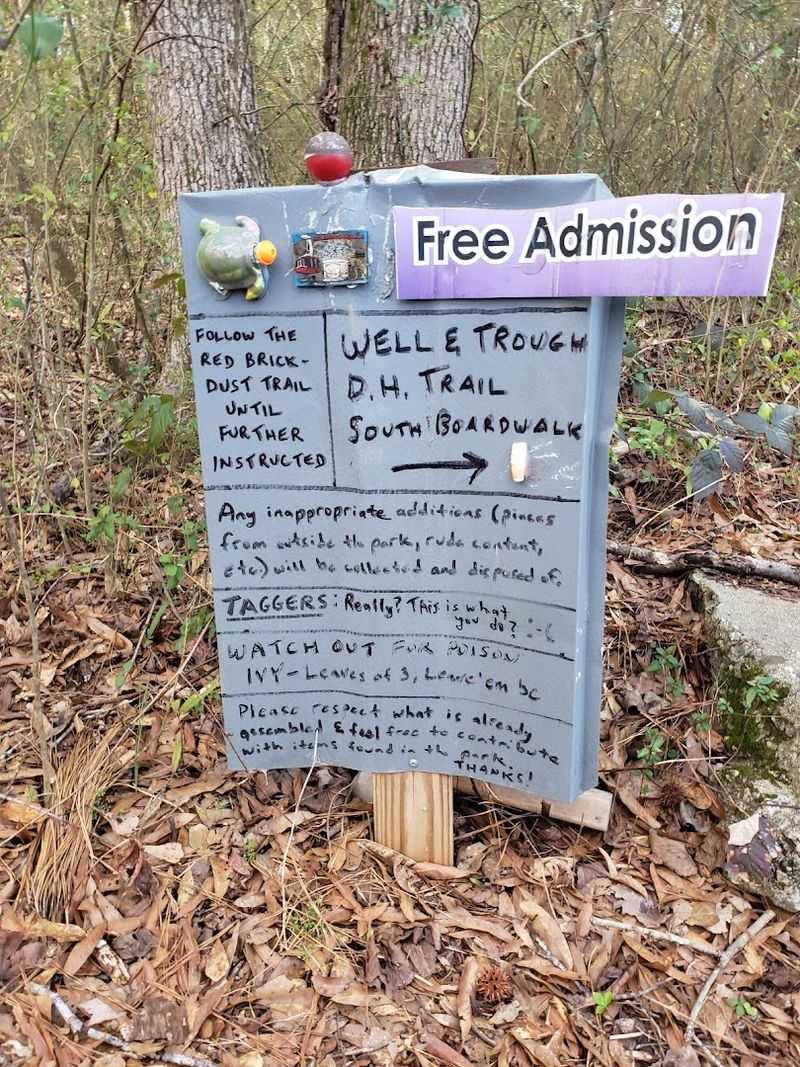 Free Admission
FOLLOW THE
RED BRICK-
DUST TRAIL
UNTIL
FURTHER
INSTRUCTED
WELL & TROUGH
D.H. TRAIL
SOUTH BOARDWALK
Any inappropriate additions (pieces
from outside the park, rude content,
etc.) will be collected and disposed of.
TAGGERS: Really? This is what
you do? :-(
WATCH OUT FOR POISON
IVY - Leaves of 3, Leave 'em be
Please respect what is already
assembled & feel free to contribute
with items found in the park.
THANKS!